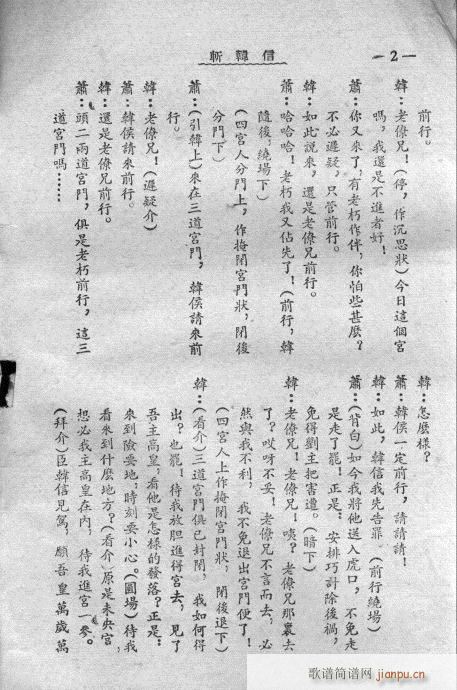 斬韓信
—2—
前行。
韓：老僚兄！(停，作沉思狀)今日這個宮
嗎，我還是不進者好！
蕭：你又來了，有老朽作伴，你怕些甚麼？
不必遲疑，只管前行。
韓：如此說來，還是老僚兄前行。
蕭：哈哈哈！老朽我又佔先了！(前行，韓
隨後，繞場下)
(四宮人分門上，作掩閉宮門狀，閉後
分門下)
蕭：(引韓上)來在三道宮門，韓侯請來前
行。
韓：老僚兄！(遲疑介)
蕭：韓侯請來前行。
韓：還是老僚兄前行。
蕭：頭二兩道宮門，俱是老朽前行，這三
道宮門嗎……
韓：怎麼樣？
蕭：韓侯一定前行，請請請！
韓：如此，韓信我先告罪。(前行繞場)
蕭：(背白)如今我將他送入虎口，不免走
是走了罷！正是：安排巧計除後禍，
免得劉主把害遭。(暗下)
韓：老僚兄！老僚兄！咦？老僚兄那裏去
了？哎呀不妥！老僚兄不言而去，必
然與我不利，我不免退出宮門便了！
(四宮人上作掩閉宮門狀，閉後退下)
韓：(看介)三道宮門俱已封閉，我如何得
出？也罷！待我放胆進得宮去，見了
吾主高皇，看他是怎樣的發落？正是：
來到險要地，時刻要小心。(圓場)待我
看來到什麼地方？(看介)原是未央宮，
想必我主高皇在內，待我進宮一參。
(拜介)臣韓信見駕，願吾皇萬歲萬
歌谱简谱网
jianpu.cn